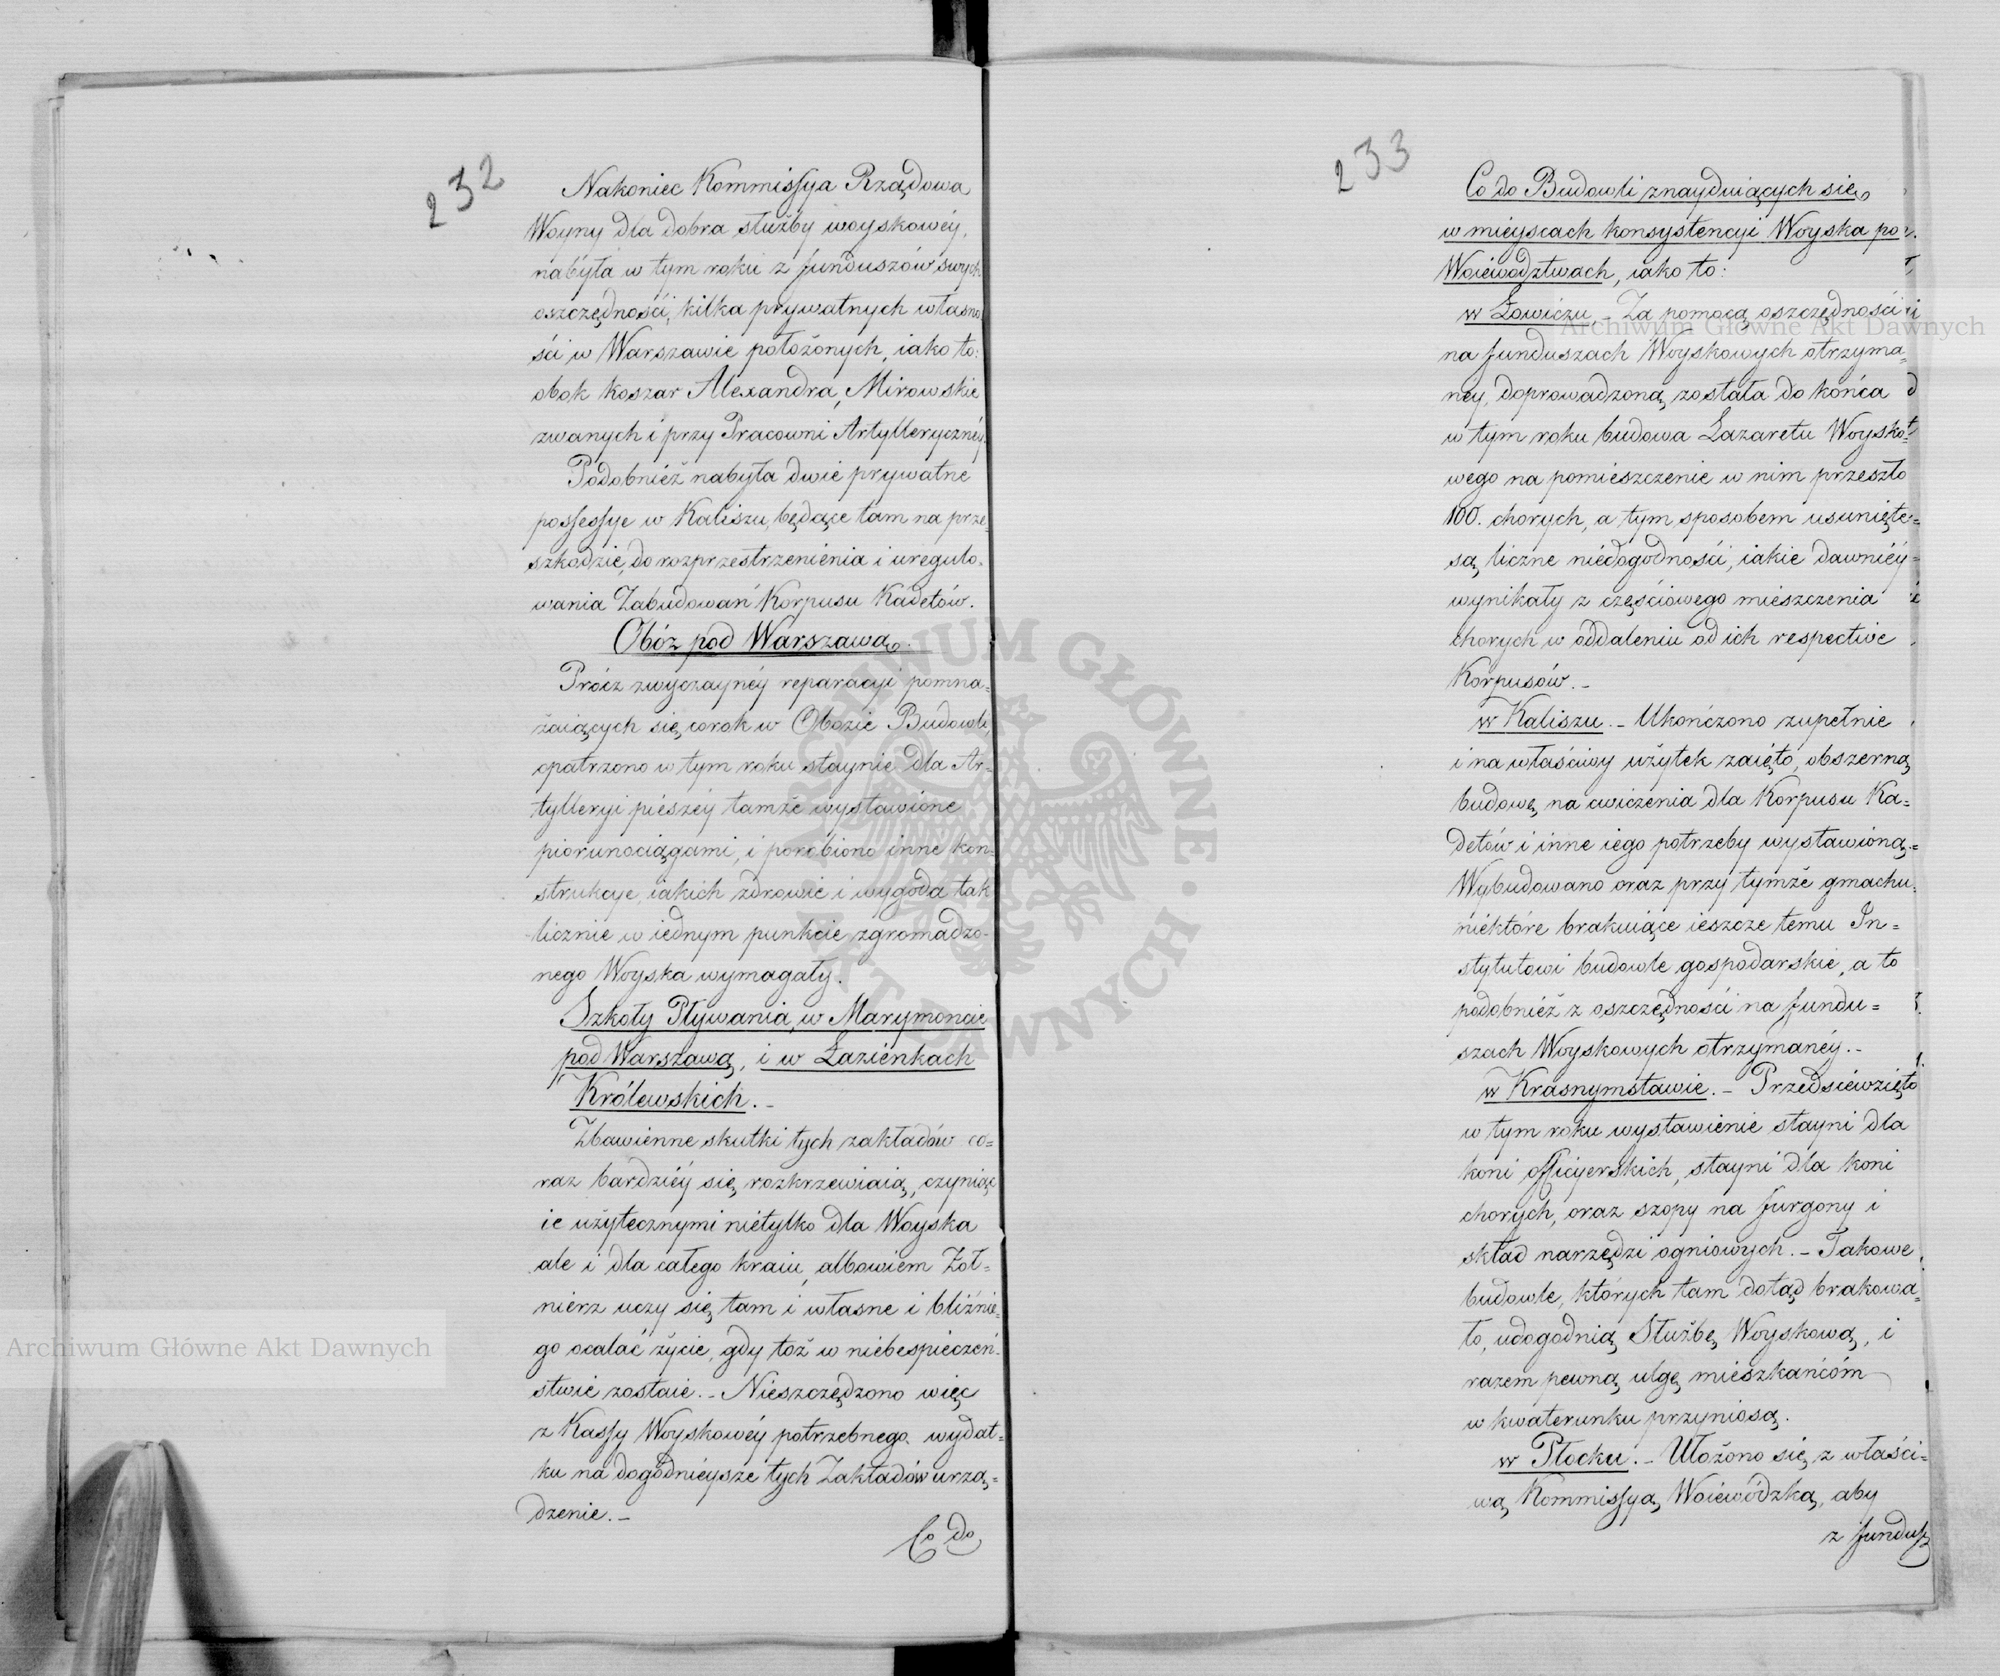 232
Nakoniec Kommissya Rządowa
Woyny dla dobra służby woyskowéy,
nabyła w tym roku z funduszów swych
oszczędności, kilka prywatnych własno
ści w Warszawie położonych, iako to:
obok koszar Alexandra, Mirowskie
zwanych i przy Pracowni Artylleryczney.
Podobnież nabyła dwie prywatne
possessye w Kaliszu, będące tam na prze-
szkodzie, do rozprzestrzenienia i uregulo-
wania Zabudowań Korpusu Kadetów.
Obóz pod Warszawą.
Prócz zwyczaynéy reparacyi pomna-
żaiących się corok w Obozie Budowli,
opatrzono w tym roku staynie dla Ar-
tylleryi pieszéy tamże wystawione
piorunociągami, i porobiono inne kon-
strukcye, iakich zdrowie i wygoda tak
licznie w iednym punkcie zgromadzo-
nego Woyska wymagały.
Szkoły Pływania, w Marymoncie
pod Warszawą, i w Łazienkach
Królewskich. -
Zbawienne skutki tych zakładów co=
raz bardziéy się rozkrzewiaią, czyniąc
ie użytecznymi nietylko dla Woyska
ale i dla całego kraiu, albowiem Żoł=
nierz uczy się tam i własne i bliźnie-
go ocalać życie, gdy toż w niebespieczeń-
stwie zostaie. - Nieszczędzono więc
z Kassy Woyskowéy potrzebnego wydat=
ku na dogodnieysze tych Zakładów urzą=
dzenie. -
Co do
233
Co do Budowli znayduiących się
w mieyscach konsystencyi Woyska po
Woiewodztwach, iako to:
w Łowiczu - Za pomocą oszczędności
na funduszach Woyskowych otrzyma=
ney, doprowadzoną została do końca
w tym roku budowa Lazaretu Woysko-
wego na pomieszczenie w nim przeszło
100. chorych, a tym sposobem usunięte
są liczne niedogodności, iakie dawniéy
wynikały z częściowego mieszczenia
chorych w oddaleniu od ich respective
Korpusów. -
w Kaliszu. - Ukończono zupełnie
i na właściwy użytek zaięto, obszerną
budowę na cwiczenia dla Korpusu Ka=
detów i inne iego potrzeby wystawioną. =
Wybudowano oraz przy tymże gmachu
niektóre brakuiące ieszcze temu In=
stytutowi budowle gospodarskie, a to
podobnież z oszczędności na fundu=
szach Woyskowych otrzymanéy. -
w Krasnymstawie. - Przedsiewzięto
w tym roku wystawienie stayni dla
koni officyerskich, stayni dla koni
chorych, oraz szopy na furgony i
skład narzędzi ogniowych. - Takowe
budowle, których tam dotąd brakowa-
ło, udogodnią Służbę Woyskową, i
razem pewną ulgę mieszkańcóm
w kwaterunku przyniosą.
w Płocku. - Ułożono się z właści=
wą Kommissyą Woiewódzką, aby
z fundusz
Archiwum Główne Akt Dawnych
Archiwum Główne Akt Dawnych
ARCHIWUM GŁÓWNE · AKT DAWNYCH ·